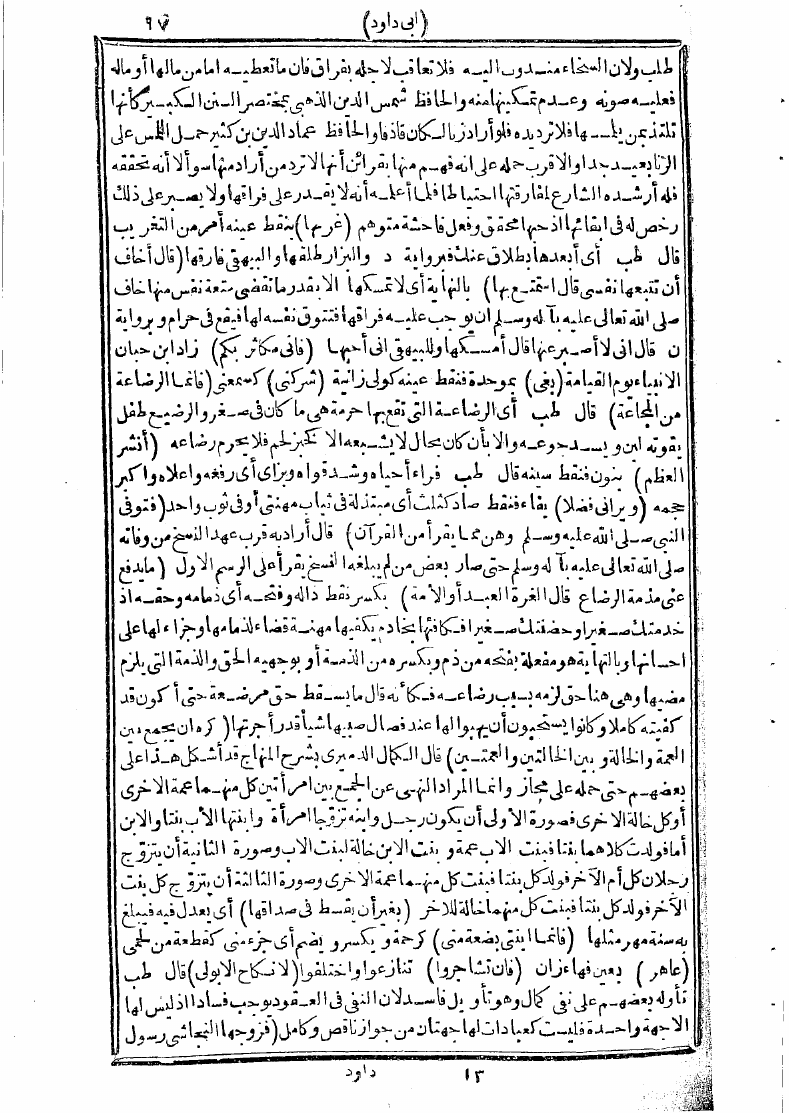 (ابى داود) ٩٧
طلب ولان السخاء مندوب اليه فلا تعاقب لاجله بفراق فان ما تعطيه اما من مالها أو ماله
فعليه صونه وعدم تمكينها منه والحافظ شمس الدين الذهبى بمختصر السنن الكبير كأنها
تلتذ بمن يلمسها فلا ترد يده فلو أراد زنا لكان قاذفا والحافظ عماد الدين بن كثير حمل اللمس على
الزنا بعيد جدا والاقرب حمله على انه فهم منها بقرائن أنها لا ترد من أراد منها سوأ لا أنه تحققه
فله أرشده الشارع لمفارقتها احتياطا فلما أعلمه أنه لا يقدر على فراقها ولا يصبر على ذلك
رخص له فى ابقائها اذ حبها محقق وفعل فاحشة متوهم (غربها) بنقط عينه أمر من التغريب
قال طب أى أبعدها بطلاق عنك فبرواية د والبزار طلقها والبيهقى فارقها (قال أخاف
أن تتبعها نفسى قال استمتع بها) بالنهاية أى لا تمسكها الا بقدر ما تقضى متعة نفس منها خاف
صلى الله تعالى عليه بآله وسلم ان يوجب عليه فراقها فتتوق نفسه لها فيقع فى حرام وبرواية
ن قال انى لا أصبر عنها قال أمسكها وللبيهقى انى أحبها (فانى مكاثر بكم) زاد ابن حبان
الانبياء يوم القيامة (بغى) بموحدة فنقط عينه كولى زانية (شركنى) كسمعنى (فانما الرضاعة
من المجاعة) قال طب أى الرضاعة التى تقع بها حرمة هى ما كان فى صغر والرضيع طفل
يقوته لبن ويسد جوعه والا بأن كان بحال لا يشبعه الا كخبز لحم فلا يحرم رضاعه (أنشر
العظم) بنون فنقط سينه قال طب فراء أحياه وشد قواه وبزاى أى رفعه واعلاه واكبر
حجمه (ويرانى فضلا) بفاء فنقط صاد كثلث أى مبتذلة فى ثياب مهنتى أو فى ثوب واحد (فتوفى
النبى صلى الله عليه وسلم وهن مما يقرأ من القرآن) قال أراد به قرب عهد النسخ من وفاته
صلى الله تعالى عليه بآله وسلم حتى صار بعض من لم يبلغه النسخ يقرأ على الرسم الاول (ما يدفع
عنى مذمة الرضاع قال الغرة العبد أو الأمة) بكسر نقط ذاله وفتحه أى ذمامه وحقه اذ
خدمتك صغيرا وحضنتك صغيرا فكافئها بخادم يكفيها مهنة قضاء لذمامها وجزاء لها على
احسانها وبالنهاية هو مفعلة بفتحه من ذم وبكسره من الذمة أو بوجهيه الحق والذمة التى يلزم
مضيها وهى هنا حق لزمه بسبب رضاعه فكأنه قال ما يسقط حق مرضعة حتى أكون قد
كفيته كاملا وكانوا يستحبون أن يهبوا لها عند فصال صبيها شيأ قدر أجرتها (كره ان يجمع بين
العمة والخالة وبين الخالتين والعمتين) قال الكمال الدميرى بشرح المنهاج قد أشكل هذا على
بعضهم حتى حمله على مجاز وانما المراد النهى عن الجمع بين امرأتين كل منهما عمة الاخرى
أو كل خالة الاخرى فصورة الأولى أن يكون رجل وابنه تزوجا امرأة وابنتها الأب بنتا والابن
أما فولدت كلاهما بنتا فبنت الاب عمة وبنت الابن خالة لبنت الاب وصورة الثانية أن يتزوج
رجلان كل أم الآخر فولد كل بنتا فبنت كل منهما عمة الاخرى وصورة الثالثة أن يتزوج كل بنت
الآخر فولد كل بنتا فبنت كل منهما خالة للآخر (بغير أن يقسط فى صداقها) أى يعدل فيه فيبلغ
به سنة مهر مثلها (فانما ابنتى بضعة منى) كرحمة ويكسر ويضم أى جزء منى كقطعة من لحمى
(عاهر) بعين فهاء زان (فان تشاجروا) تنازعوا واختلفوا (لا نكاح الا بولى) قال طب
تأوله بعضهم على نفى كمال وهو تأويل فاسد لان النفى فى العقود يوجب فسادا اذ ليس لها
الا جهة واحدة فليست كعبادات لها جهتان من جواز ناقص وكامل (فزوجها النجاشى رسول
١٣ داود